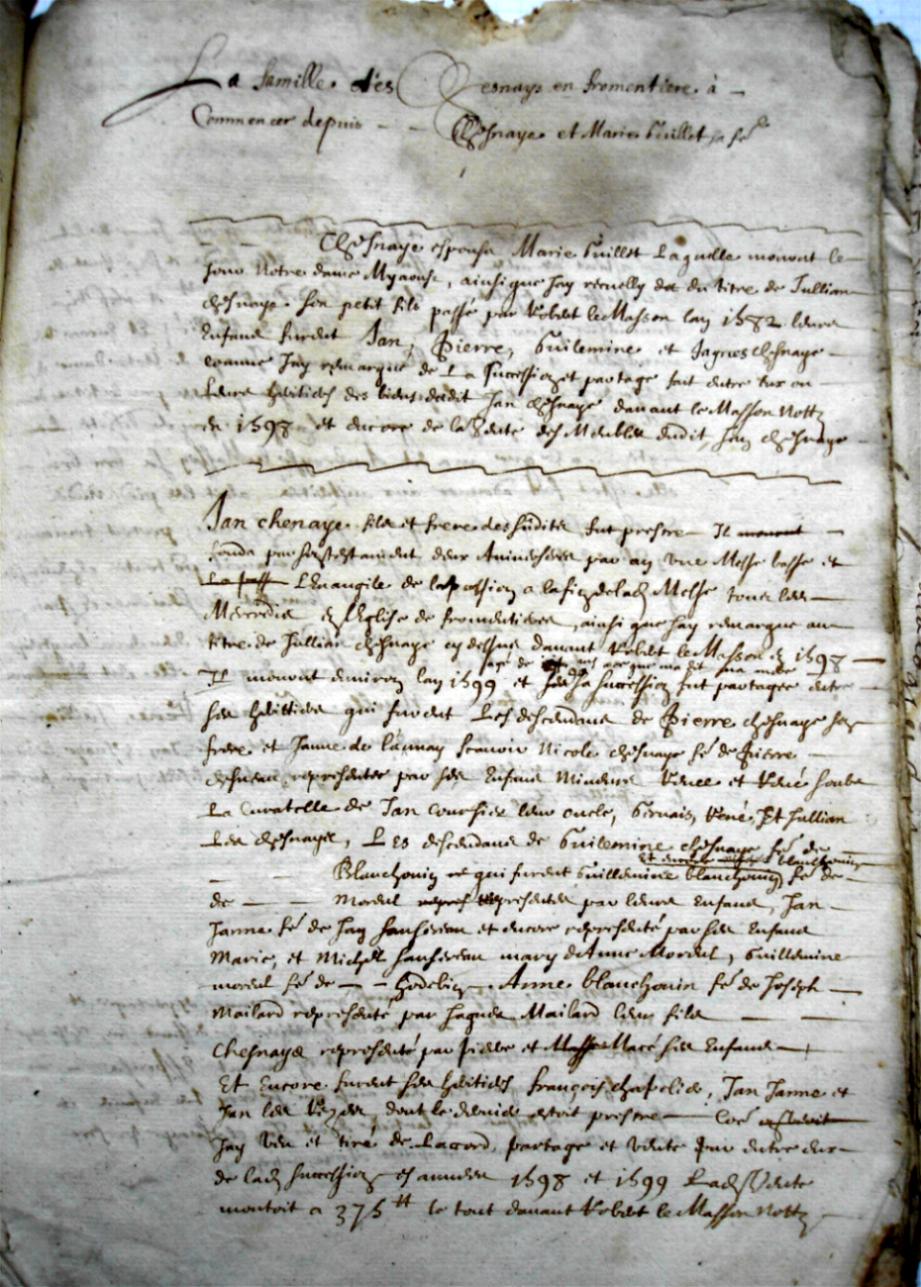 La famille des Chesnays en fromentiere à
Commencer depuis - - Chesnaye et Marie Guillet sa fe
Chesnaye espousa Marie Guillet Laquelle mourut le
jour Notre dame Myaoust, ainsi que Jay recuelly du titre de Jullian
chesnaye son petit fils passé par Robert le Masson lan 1582 leurs
Enfans furent Jan, Pierre, Guilemine et Jaques chesnaye
comme Jay remarque de La Succession et partage fait entre eux ou
leurs héritiers des biens dudit Jan chesnaye davant le Masson Nottre
en 1598 et encore de la Vente des Meubles dudit Jan chesnaye
Jan chenaye fils et frere desSudits fut prestre Il mourut
fonda par son testament deux Anniversères par an une Messe basse et
La pass L'Evangile de la passion a la fin de lad Messe tous les
Mecredis en l'Eglise de fromentieres, ainsi que Jay remarque au
titre de Jullian chesnaye cy dessus davant Robert le Masson en 1598
Il mourut environ lan 1599 et sa Succession fut partagee entre
ses héritiers qui furent Les descendans de Pierre chesnaye son
frere et Janne de launay scavoir Nicole chesnaye fe de Pierre
représentée par ses Enfans Mineurs Renee et René soubs
La Curatelle de Jan leur oncle, Gervais, René, Et Jullian
Les chesnayes, Les descendans de Guilemine chesnaye fe de
Et encore blanchouin
Blanchouin qui furent Guillemine blanchouin fe de
de - - Moreul représentée par leurs Enfans, Jan
Janne fe de Jan et encore représenté par ses Enfans
Marie, et Michel mary de Anne Moreul, Guillemine
moreul fe de - - Anne blanchouin fe de Joseph
Mailard représenté par Jaques Mailard leur fils
Chesnaye représenté par Pierre et Macé ses Enfans
Et Encore furent ses héritiers françois, Jan Janne et
Jan les, dont le dernier estoit prestre
Jay veu et tiré de Laccord, partage et vente fait entre eux
de lad succession es années 1598 et 1599 Lad Vente
montoit a 375 tt le tout davant Robert le Masson Nottre